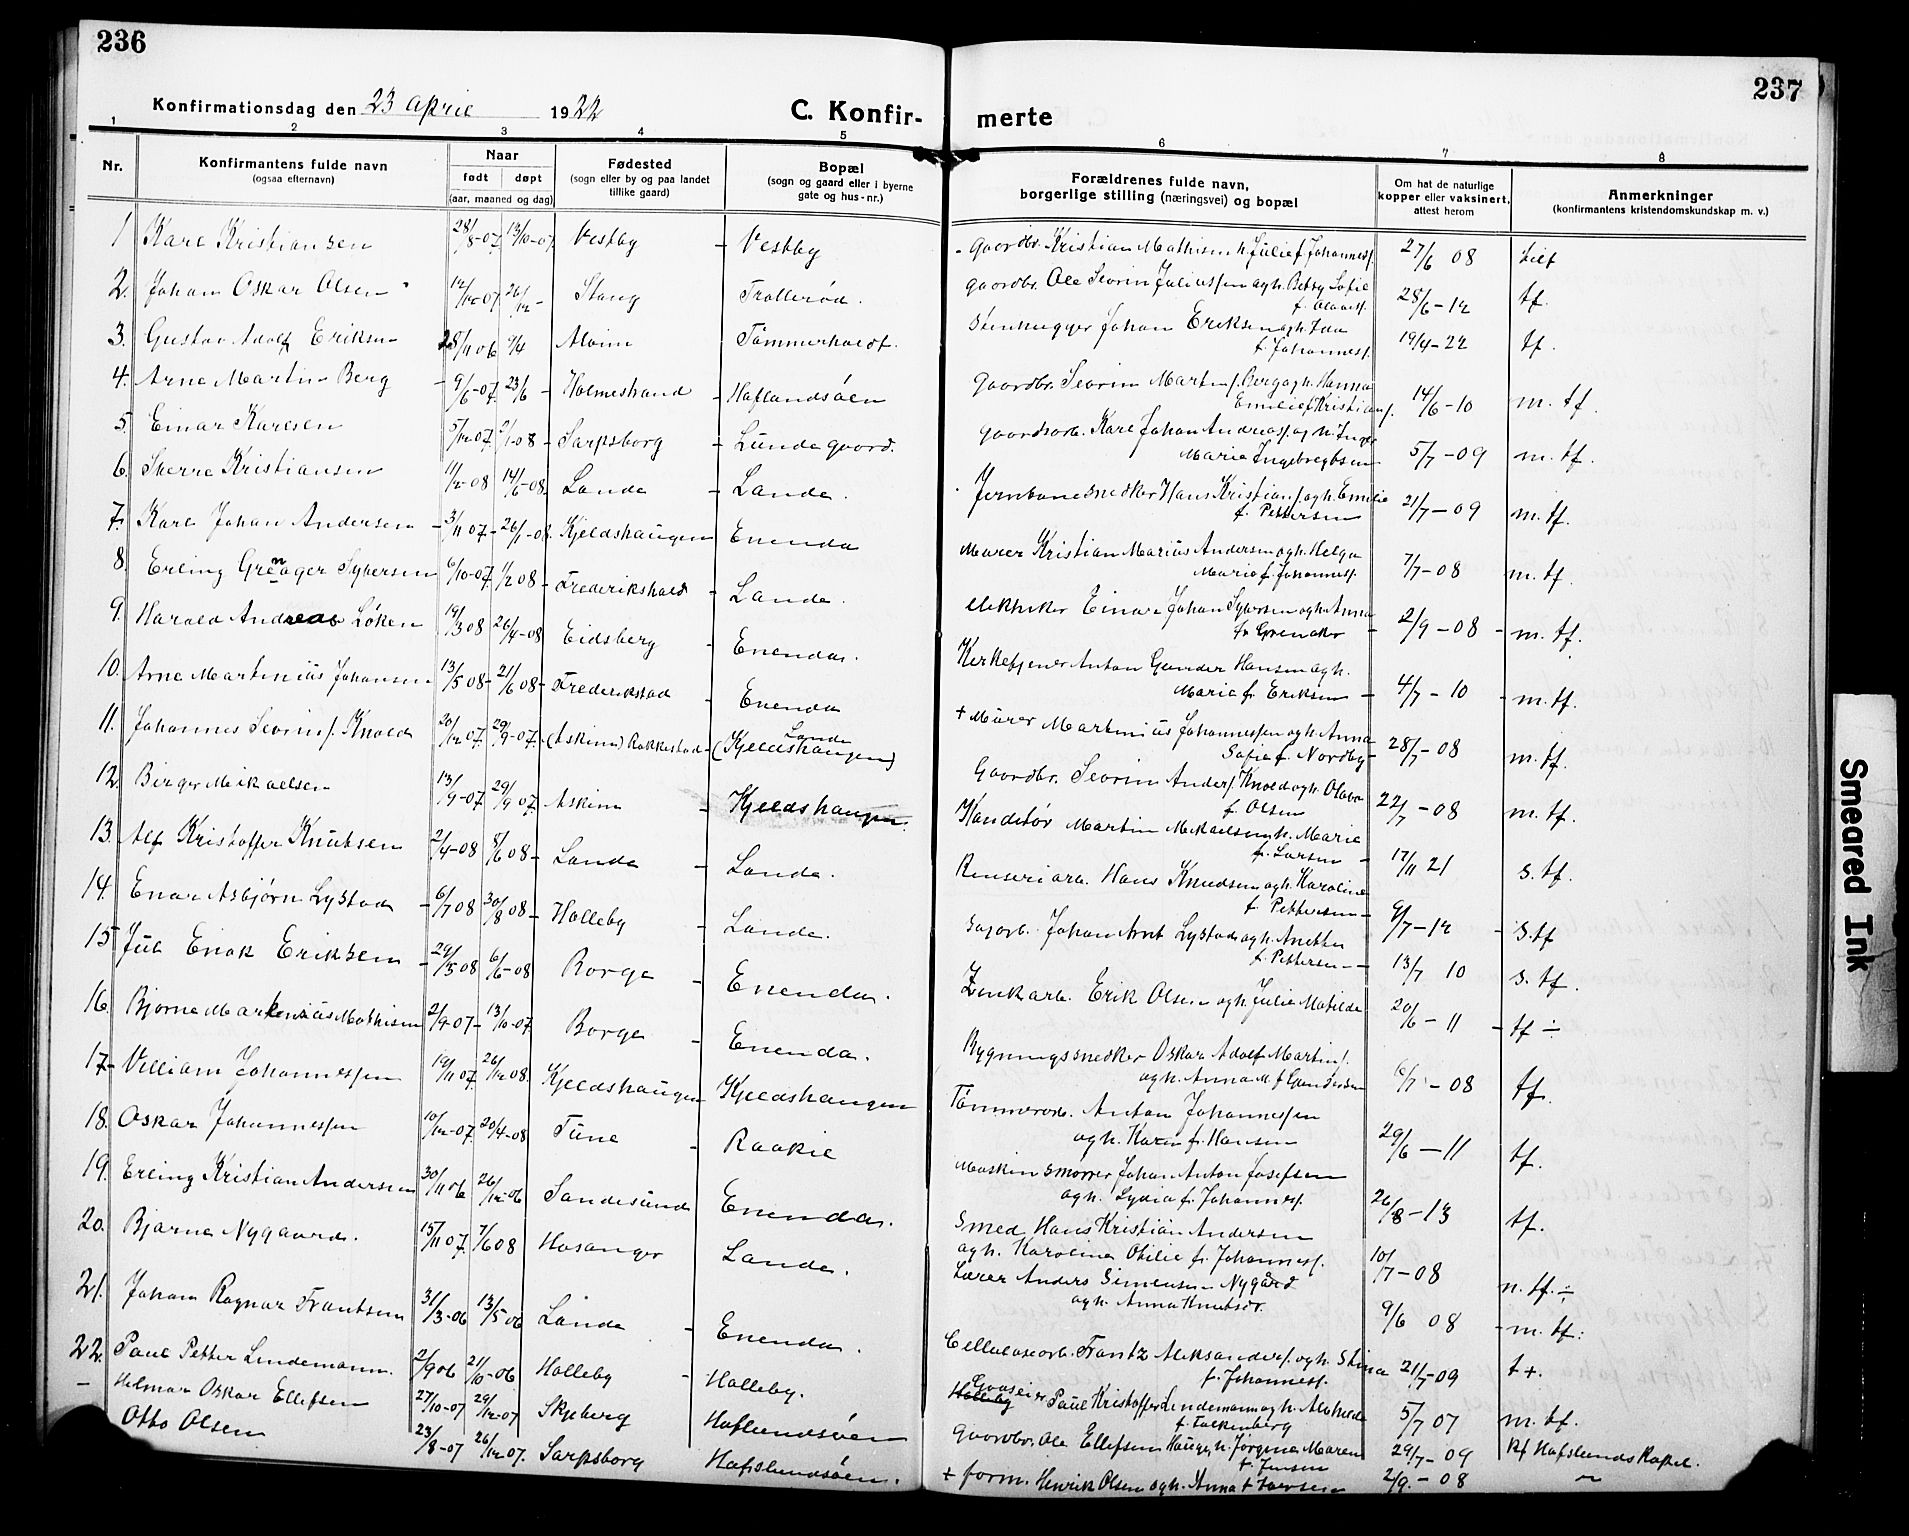 236
237
Konfirmationsdag den 23 april 1922
C. Konfir-
merte
1 2 3 4 5 6 7 8
Nr.
Konfirmantens fulde navn
(ogsaa efternavn)
Naar
født døpt
(aar, maaned og dag)
Fødested
(sogn eller by og paa landet
tillike gaard)
Bopæl
(sogn og gaard eller i byerne
gate og hus-nr.)
Forældrenes fulde navn,
borgerlige stilling (næringsvei) og bopæl
Om hat de naturlige
kopper eller vaksinert,
attest herom
Anmerkninger
(konfirmantens kristendomskundskap m. v.)
1 Karl Kristiansen 28/8-07 13/10-07 Vestby - Vestby - gaardbr. Kristian Mathisen h. Julie f. Johannesf. 27/6 08
2. Johan Oskar Olsen 26/12- Stang Trollerød. gaardbr. Ole Severin Juliussen og h. Betsy Sofie 28/6-12 tf.
3. Gustav Adolf Eriksen 28/11 06 Alvim Tømmerholdt. Stenhugger Johan Eriksen og h. Ida
f. Johannesf. 19/4-22 tf.
4. Arne Martin Berg - 9/6-07. 23/6 - Holmestrand - Haflandsöen gaardbr. Severin Martins. Berg og h. Hanna
Emilie f. Kristians. 14/6-10 m. tf.
5. Einar Karlsen 5/12-07. Sarpsborg - Lunde gaard. gaardsarb. Karl Johan Andreasf. og h. Inga
Marie Ingebregtsen 5/7-09 m. tf.
6. Sverre Kristiansen 11/2-08 14/6-08. Lande - Lande. Jernbanesnedker Hans Kristians. og h. Emilie
f. Pettersen 21/7-09 m. tf.
7. Karl Johan Andersen - 3/11 07- 26/1-08. Kjeldshaugen Enenda Murer Kristian Marius Andersen og h. Helga
Marie f. Johannesf. 7/7-08 m. tf.
8. Erling Grenager Syversen 6/10-07. 1/2 08 - Frederikshald - Lande. elektriker Einar Johan Syversen og h. Anna
f. Grenaker - 2/9-08 - m. tf.
9. Harald Andreas Løken 19/3 08 26/4-08 Eidsberg - Enenda. Kirketjener Anton Gunder Hansen og h.
Marie f. Eriksen - 4/7-10 - m. tf.
10. Arne Martinius Johansen 13/5 08- 21/6 08- Frederikstad - Enenda + Murer Martinius Johannessen og h. Anna
Sofie f. Nordby - 28/7-08 m. tf.
11. Johannes Severins. Knold 20/12 07. 29/9-07. (Askim) Rakkestad - Lande
(Kjeldshaugen) Gaardbr. Severin Anders. Knold og h. Olava
f. Olsen 22/7-08 m. tf.
12. Birger Mikaelsen 13/9-07. 29/9 07. Askim - Kjeldshaugen. Konditor Martin Mikaelsen h. Marie
f. Larsen - 17/11 21 s. tf.
13. Alf Kristoffer Knutsen 2/4-08 8/6 08- Lande - Lande. Renseriarb. Hans Knudsen og h. Karoline
f. Pettersen - 9/7-12 - s. tf
14. Enar Asbjørn Lystad - 6/7 08 30/8 08- Holleby - Lande. Sagarb. Johan Arnt Lystad og h. Anetha
f. Pettersen - 13/7 10 s. tf.
15 Jul Enok Eriksen - 29/3 08 6/6-08 Borge - Enenda. Zinkarb. Erik Olsen og h. Julie Matilde 20/6-11 - tf ÷
16. Bjarne Martinius Mathisen 2/9-07- 13/10-07. Borge - Enenda. Bygningssnedker Oskar Adolf Martins.
og h. Anna M. f. Gundersen 6/7-08 tf.
17- Villiam Johannessen 19/11 07. 26/12 08. Kjeldshaugen - Kjeldshaugen Tømmerarb. Anton Johannessen
og h. Karen f. Hansen 29/6-11 tf.
18. Oskar Johannessen 10/12-07. 20/4-08 Tune - Raakil Maskinsmører Johan Anton Josefsen
og h. Lydia f. Johannesf. 26/8-13 tf.
19. Erling Kristian Andersen 30/11 06 26/12-06 Sandesund Enenda. Smed Hans Kristian Andersen
og h. Karoline Otilie f. Johannesf. 10/7-08 n. tf. ÷
20. Bjarne Nygaard. 15/11 07. 7/6 08 Hosanger Lande. Lærer Anders Simensen Nygård
og h. Anna Knutsdr. 9/6 08 - m. tf:
21. Johan Ragnar Frantsen 31/3-06 13/5 06 Lande - Enenda. Cellulosearb. Frantz Aleksanders. og h. Stina
f. Johannesf. 21/7-09 t+.
22. Paul Petter Lindemann. 2/9 06 21/10-06 Holleby - Holleby. Gaardeier Paul Kristoffer Lindemann og h. Matilde
f. Falkenberg 5/7 07 m. tf.
- Helmar Oskar Ellefsen 27/10-07 29/12-07 Skjeberg Haflundsöen gaardbr. Ole Ellefsen Hauge, h. Jørgine Maren
f. Jensen 29/7-09 Kf Hafslunds Kapel.
Otto Olsen 23/8-07 26/12 07. Sarpsborg Hafslundsöen. + form. Henrik Olsen og h. Anna f. Iversen 2/9.-08 ~
Smeared Ink